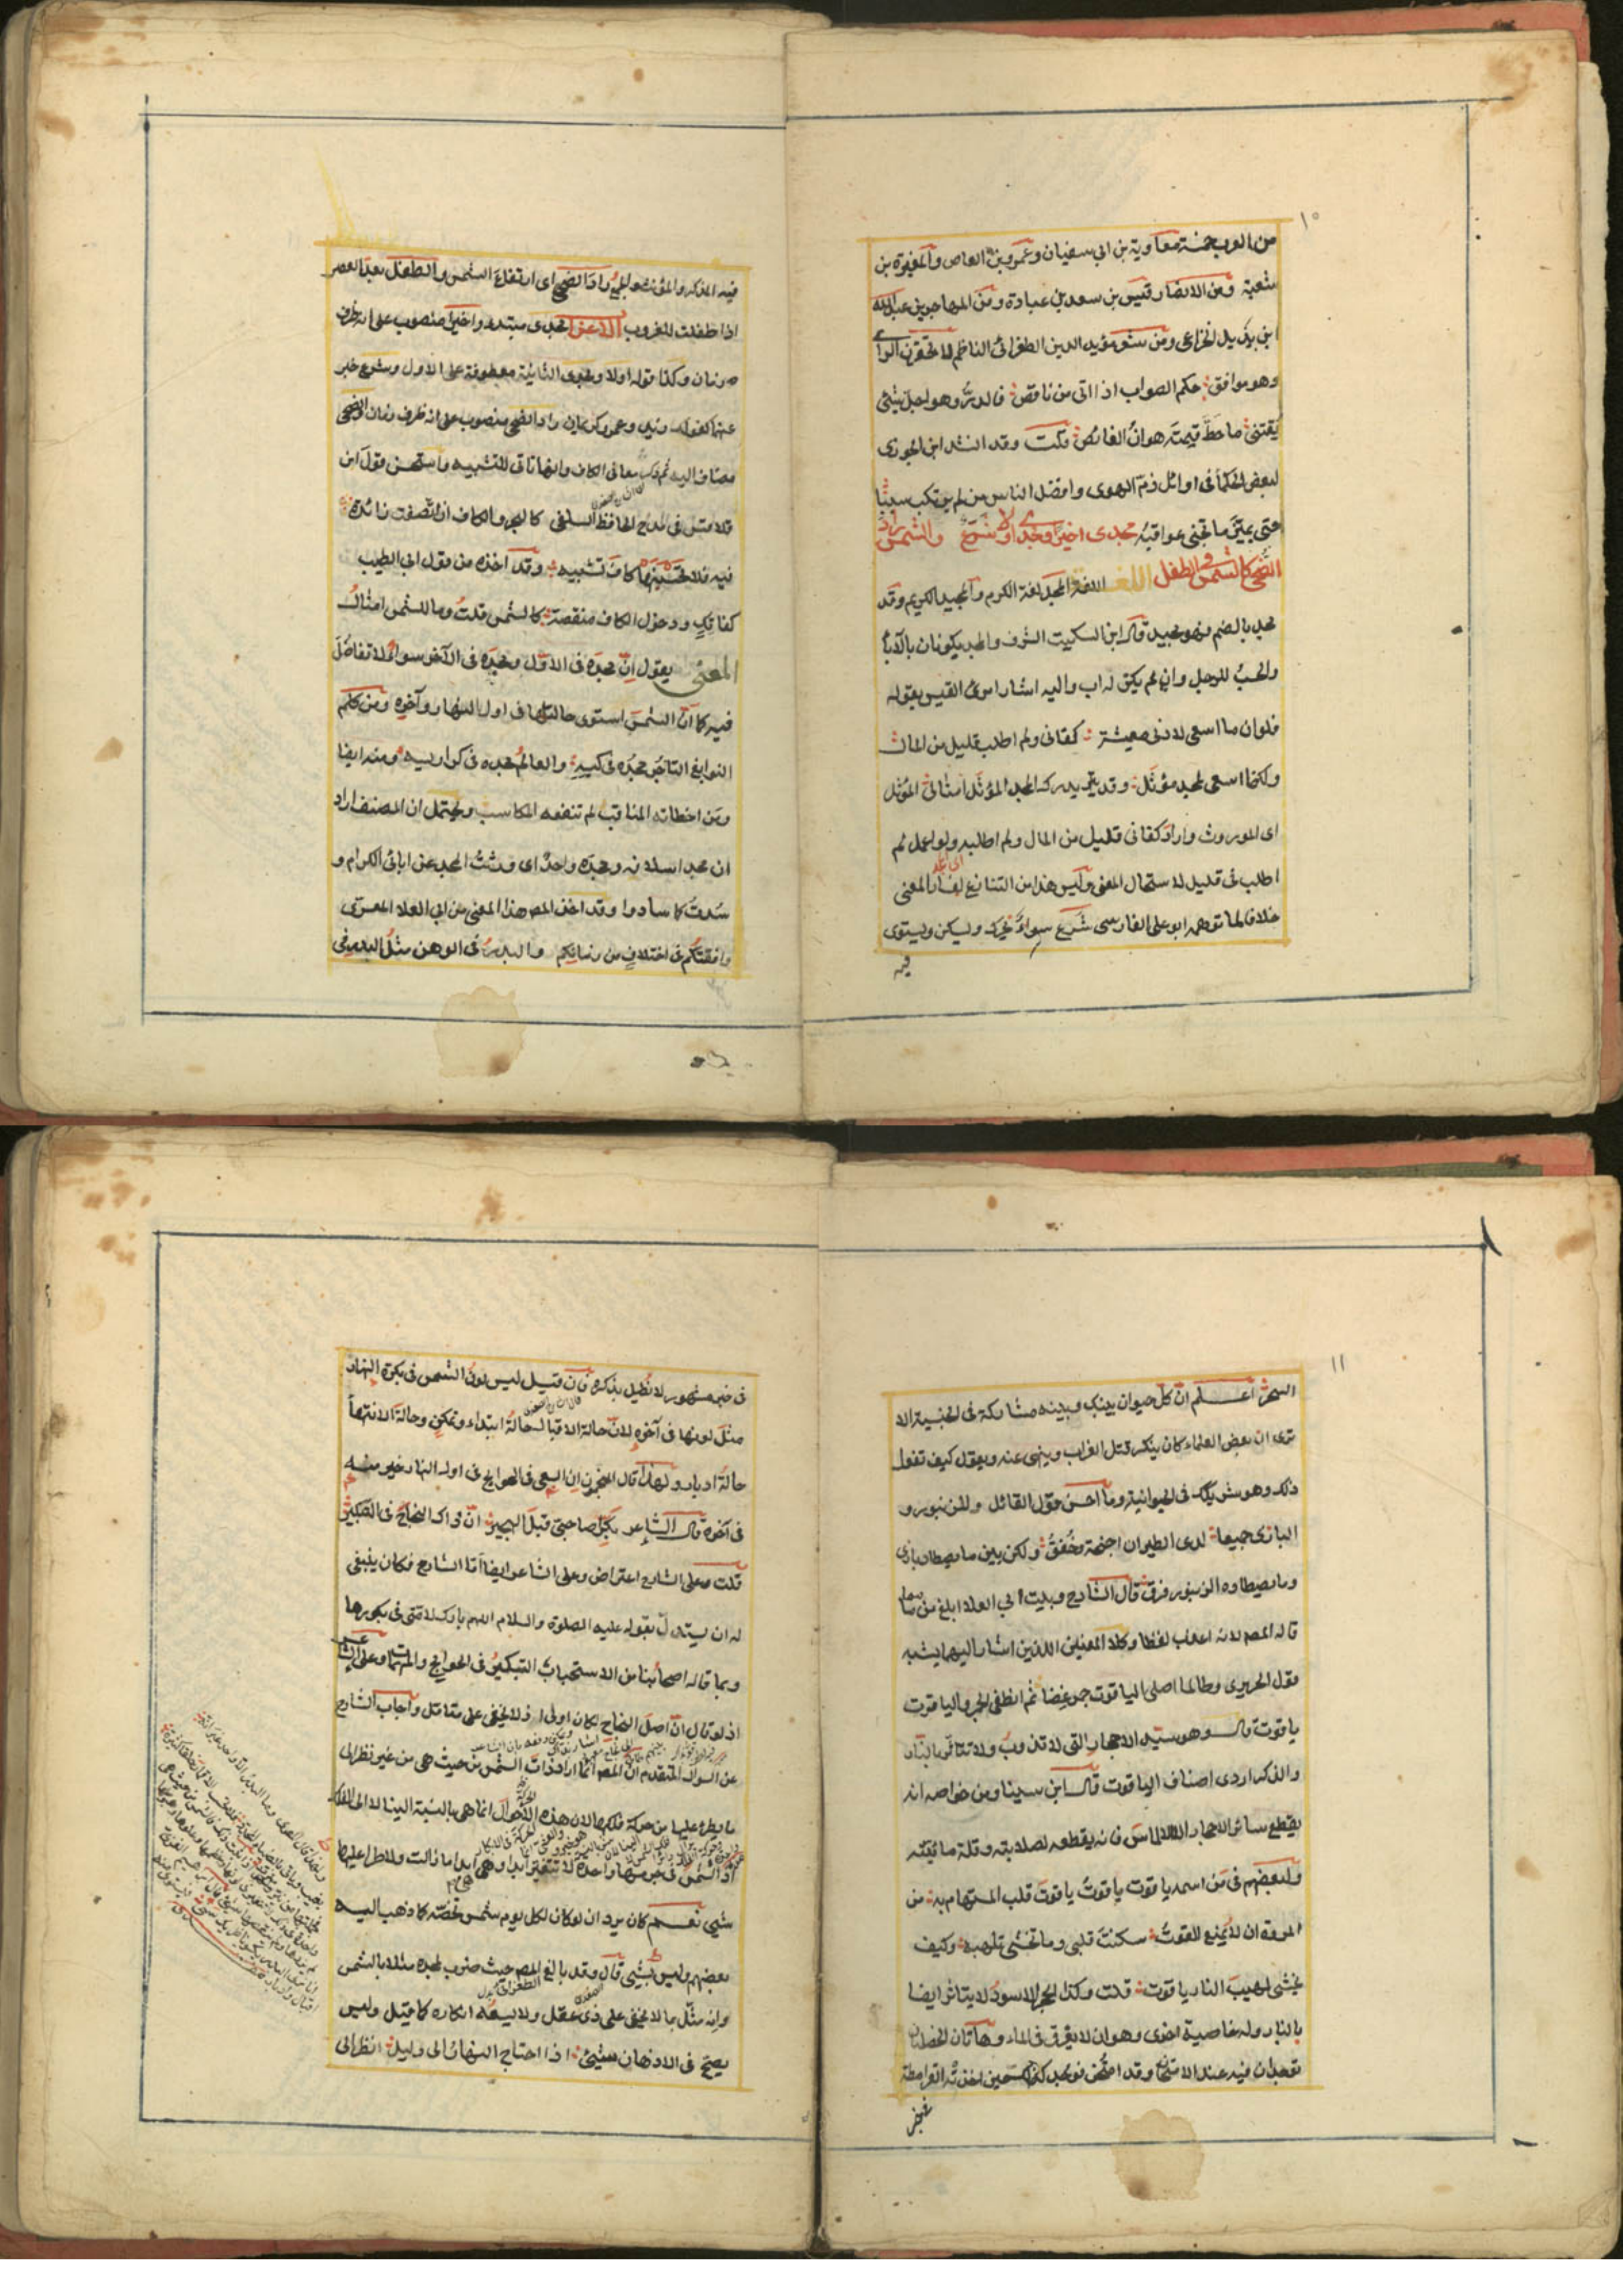 ١٠
من العرب خمسة معاوية بن ابي سفيان وعمرو بن العاص والمغيرة بن
شعبة ومن الانصار قيس بن سعد بن عبادة ومن المهاجرين عبد الله
ابن بديل الخزاعى ومن شعر مؤيد الدين الطغرائى الناظم لا تحقرن الراى
وهو موافق حكم الصواب اذا اتى من ناقص فالدر وهو اجل شئ
يقتنى ما حط قيمته هوان الغائص قلت وقد انشد ابن الجوزى
لبعض الحكما فى اوائل ذم الهوى وافضل الناس من لم يرتكب سببا
حتى يميز ما تجنى عواقبه مجدى اخيرا ومجدى اولا شرع والشمس راد
الضحى كالشمس فى الطفل اللغة المجد لغة الكرم والمجيد الكريم وقد
مجد بالضم فهو مجيد قال ابن السكيت الشرف والمجد يكونان بالآباء
والحسب للرجل وان لم يكن له اب واليه اشار امرئ القيس بقوله
فلو ان ما اسعى لادنى معيشة كفانى ولم اطلب قليل من المال
ولكنما اسعى لمجد مؤثل وقد يدرك المجد المؤثل امثالى المؤثل
اى الموروث واراد كفانى قليل من المال ولم اطلبه ولو اعمل لم
اطلب فى قليل لاستحال المعنى وليس هذا من التنازع لفساد المعنى
خلافا لما توهمه ابو على الفارسى شرع سواء يحرك ويسكن ويستوى
فيه
فيه المذكر والمؤنث والجمع راد الضحى اى ارتفاع الشمس والطفل بعد العصر
اذا طفلت للغروب الاعراب مجدى مبتدء واخيرا منصوب على انه ظرف
زمان وكذا قوله اولا ومجدى الثانية معطوفة على الاول وشرع خبر
عنهما كقولك زيد وعمرو كريمان راد الضحى منصوب على انه ظرف زمان والضحى
مضاف اليه معانى الكاف وانها تاتى للتشبيه واستحسن قول ابن
قلاقس فى مدح الحافظ السلفى كالبحر والكاف ان انصفت زائدة
فيه فلا تحسبنها كاف تشبيه وقد اخذه من قول ابى الطيب
كفاتك ودخول الكاف منقصة كالشمس قلت وما للشمس امثال
المعنى يقول ان مجده فى الاول ومجده فى الآخر سواء لا تفاضل
فيه كما ان الشمس استوى حالتاها فى اول النهار وآخره ومن كلم
النوابغ التاجر مجده فى كيسه والعالم مجده فى كراريسه ومنه ايضا
ومن اخطاته المناقب لم تنفعه المكاسب ويحتمل ان المصنف اراد
ان مجد اسلافه ومجده واحد اى ورثت المجد عن ابائى الكرام و
سدت كما سادوا وقد اخذ المصـ هذا المعنى من ابى العلاء المعرى
وافقتكم فى اختلاف من زمانكم والبدر فى الوهن مثل البدر فى
١١
السحر اعلم ان كل حيوان بينك وبينه مشاركة فى الجنسية الا
ترى ان بعض العلماء كان ينكر قتل الغراب وينهى عنه ويقول كيف تفعل
ذلك وهو شريكك فى الحيوانية وما احسن قول القائل وللزنبور و
البازى جميعا لدى الطيران اجنحة وخفق ولكن بين ما يصطاد بازى
وما يصطاده الزنبور فرق قال الشارح وبيت ابى العلا ابلغ من
قاله المصـ لانه اعذب لفظا وكلا المعنيين اللذين اشار اليهما يشبه
قول الحريرى وطالما اصلى الياقوت جمر غضا ثم انطفى الجمر والياقوت
ياقوت قال وهو سيد الاحجار التى لا تذوب ولا تتاثر بالنار
والذكر اردى اصناف الياقوت قال ابن سينا ومن خواصه انه
يقطع سائر الاحجار الا الالماس فانه يقطعه لصلابته وقلة مائيته
ولبعضهم فى من اسمه ياقوت ياقوت ياقوت قلب المستهام به من
المروة ان لا يمنع القوت سكنت قلبى وما تخشى تلهبه وكيف
يخشى لهيب النار ياقوت قلت وكذا الحجر الاسود لا يتاثر ايضا
بالنار وله خاصية اخرى وهو ان لا يغرق فى الماء وهاتان الخصلتان
توجدان فيه عند الامتحان وقد امتحن فوجد كذا حين اخذته القرامطة
فى خبر مشهور لا نطيل بذكره فان قيل ليس لون الشمس فى بكرة النهار
مثل لونها فى آخره لان حالة الاقبال حالة ابتداء وتمكن وحالة الانتهاء
حالة ادبار ولهذا قال المنجمون ان السعى فى الحوائج فى اول النهار خير منه
فى آخره قال الشاعر بكرا صاحبى قبل الهجير ان ذاك النجاح فى التبكير
قلت وعلى الشارح اعتراض وعلى الشاعر ايضا اما الشارح فكان ينبغى
له ان يستدل بقوله عليه الصلوة والسلام اللهم بارك لامتى فى بكورها
وبما قاله اصحابنا من الاستحباب التبكير فى الحوائج والمهمات وعلى الشاعر
اذ لو قال ان اصل النجاح لكان اولى اذ لا يخفى على متامل واجاب الشارح
عن السوال المتقدم ان المصـ انما اراد ذات الشمس من حيث هى من غير نظر الى
ما يطرء عليها من حركة فلكها لان هذه الاحوال انما هى بالنسبة الينا لا الى الفلك
اذ الشمس فى جرمها واحدة لا تتغير ابدا وهى ابدا ما زالت ولا طرا عليها
شئ نعم كان يرد ان لو كان لكل يوم شمس تخصه كما ذهب اليه
بعضهم وليس بشئ قال وقد بالغ المصـ حيث ضرب لمجده مثلا بالشمس
وانه مثل بما لا يخفى على ذى عقل ولا يسعه انكاره كما قيل وليس
يصح فى الاذهان شئ اذا احتاج النهار الى دليل انظر الى